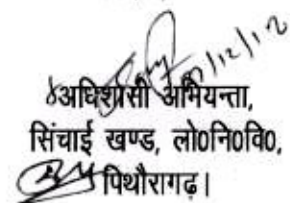 11/12/12
अधिशासी अभियन्ता,
सिंचाई खण्ड, लो0नि0वि0,
पिथौरागढ़।